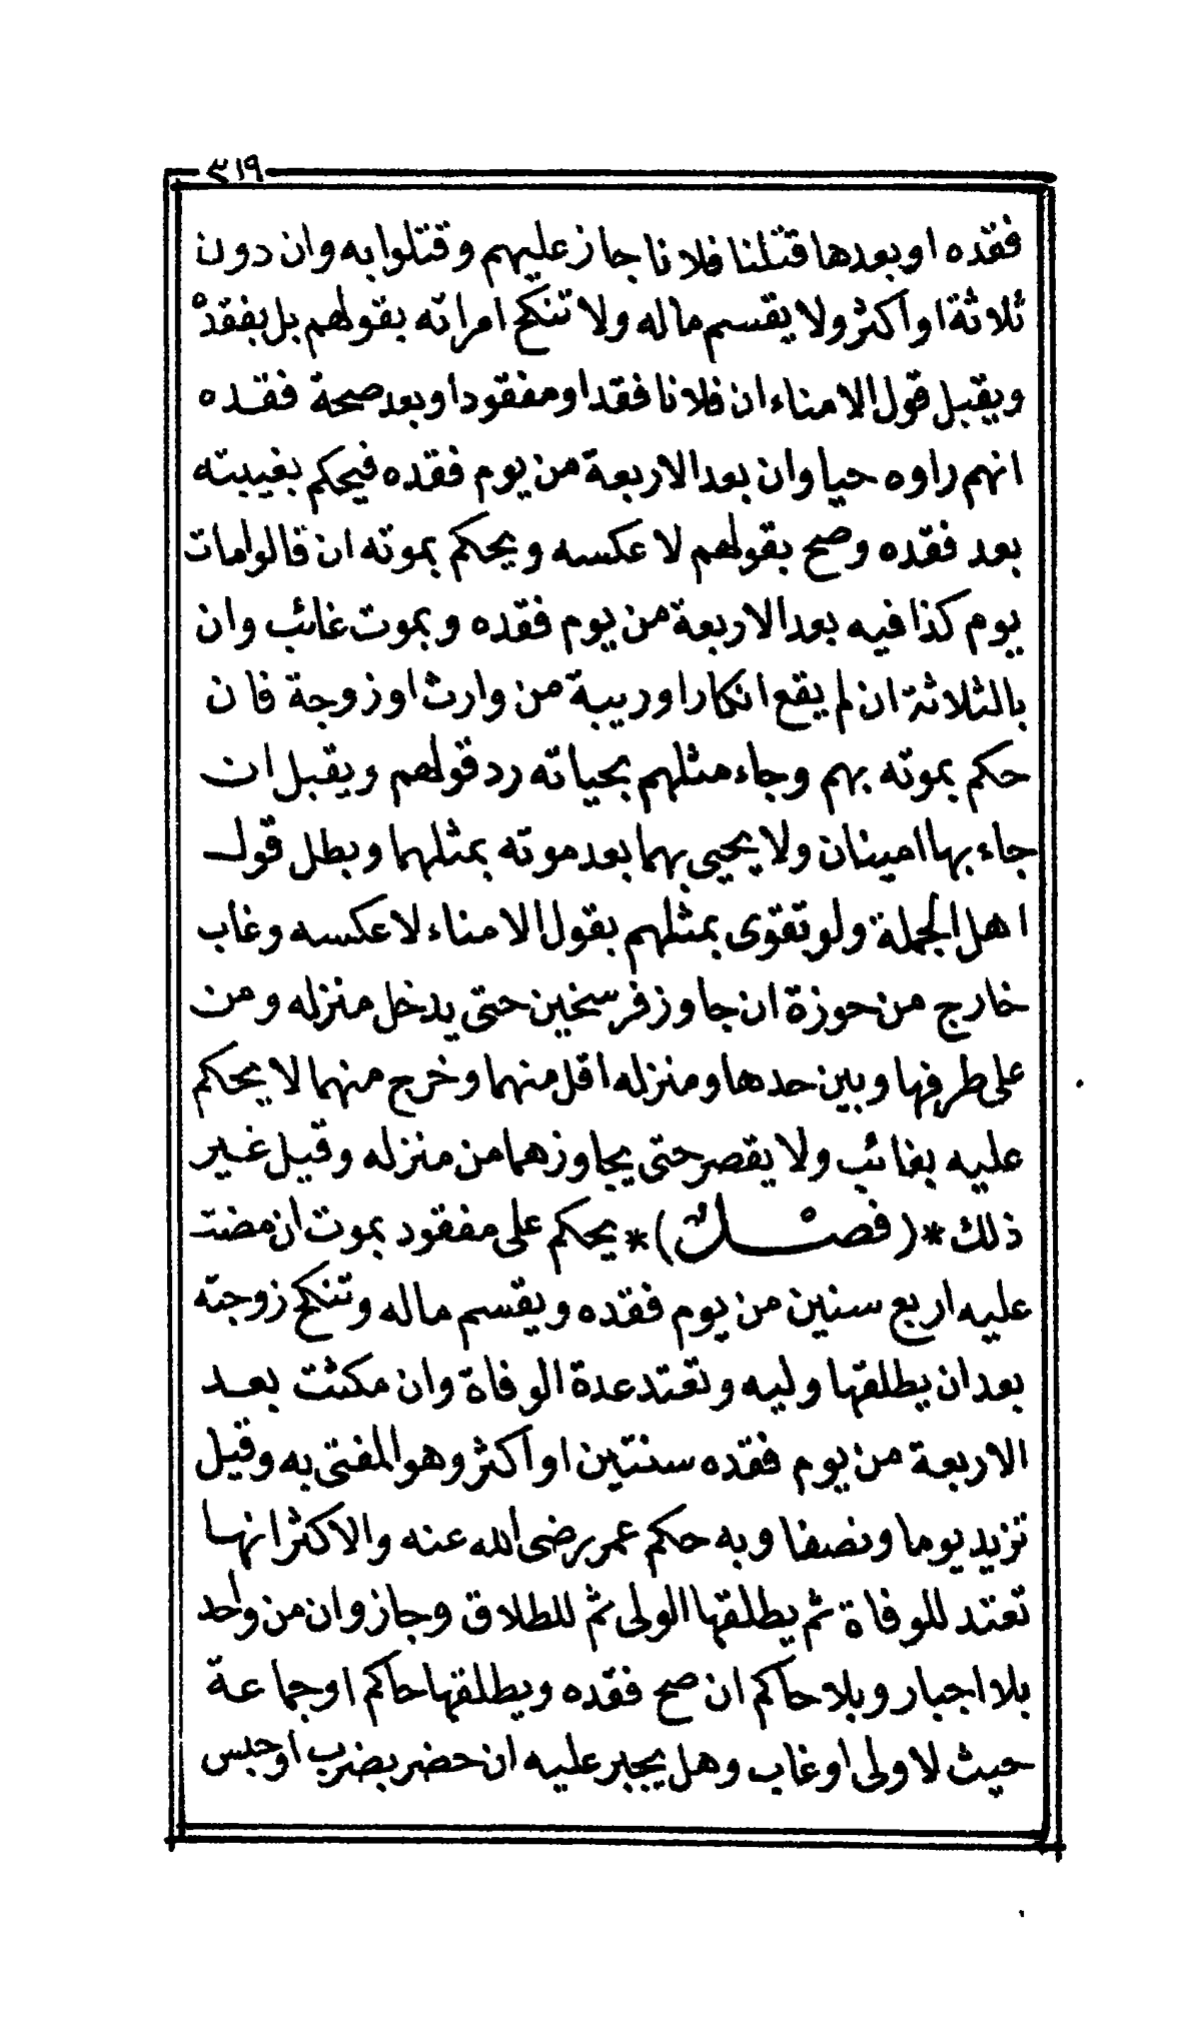 ٣١٩
فقده او بعدها قتلنا فلانا جاز عليهم وقتلوا به وان دون
ثلاثة او اكثر ولا يقسم ماله ولا تنكح امراته بقولهم بل بفقده
ويقبل قول الامناء ان فلانا فقد او مفقود او بعد صحة فقده
انهم راوه حيا وان بعد الاربعة من يوم فقده فيحكم بغيبته
بعد فقده وصح بقولهم لا عكسه ويحكم بموته ان قالوا مات
يوم كذا فيه بعد الاربعة من يوم فقده وبموت غائب وان
بالثلاثة ان لم يقع انكار او ريبة من وارث او زوجة فان
حكم بموته بهم وجاء مثلهم بحياته رد قولهم ويقبل ان
جاء بها امينان ولا يحيى بهما بعد موته بمثلهما وبطل قول
اهل الجملة ولو تقوى بمثلهم بقول الامناء لا عكسه وغاب
خارج من حوزة ان جاوز فرسخين حتى يدخل منزله ومن
على طرفها وبين حدها ومنزله اقل منهما وخرج منهما لا يحكم
عليه بغائب ولا يقصر حتى يجاوزهما من منزله وقيل غير
ذلك *(فصل)* يحكم على مفقود بموت ان مضت
عليه اربع سنين من يوم فقده ويقسم ماله وتنكح زوجته
بعد ان يطلقها وليه وتعتد عدة الوفاة وان مكثت بعد
الاربعة من يوم فقده سنتين او اكثر وهو المفتى به وقيل
تزيد يوما ونصفا وبه حكم عمر رضى الله عنه والاكثر انها
تعتد للوفاة ثم يطلقها الولى ثم للطلاق وجاز وان من واحد
بلا اجبار وبلا حاكم ان صح فقده ويطلقها حاكم او جماعة
حيث لا ولى او غاب وهل يجبر عليه ان حضر بضرب او حبس